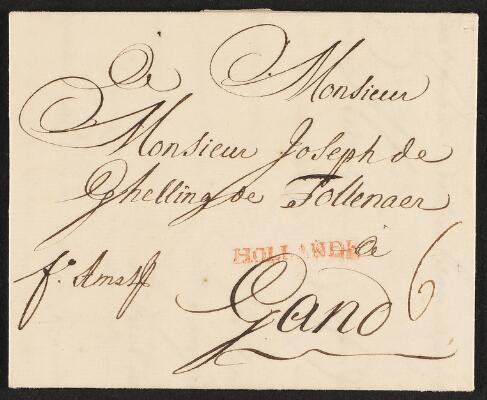 à Monsieur
Monsieur Joseph de
Ghelling de Follenaer
HOLLANDE
à
f.º Amstf
Gand 6